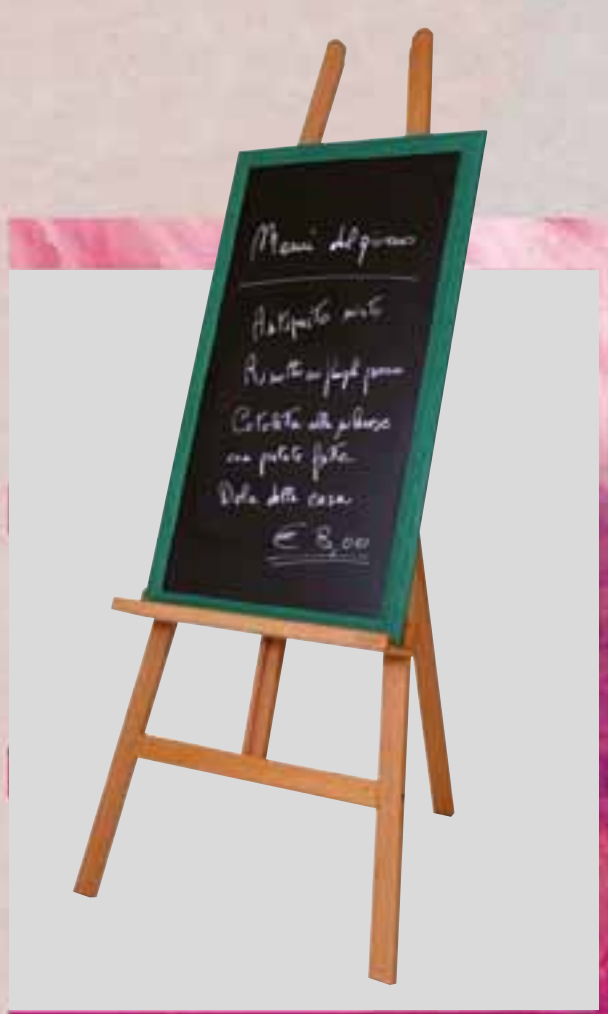 Menù del giorno
Antipasto misto
Risotto con funghi porcini
Cotoletta alla milanese
con patate fritte
Dolce della casa
€ 8,00